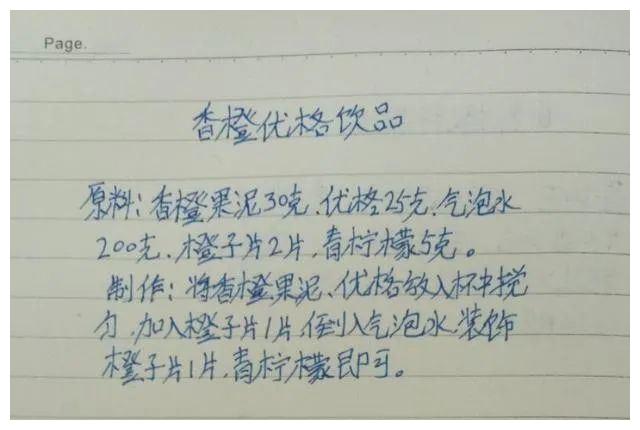 Page.
香橙优格饮品
原料：香橙果泥30克、优格25克、气泡水
200克、橙子片2片、青柠檬5克。
制作：将香橙果泥、优格放入杯中搅
匀，加入橙子片1片，倒入气泡水，装饰
橙子片1片，青柠檬即可。